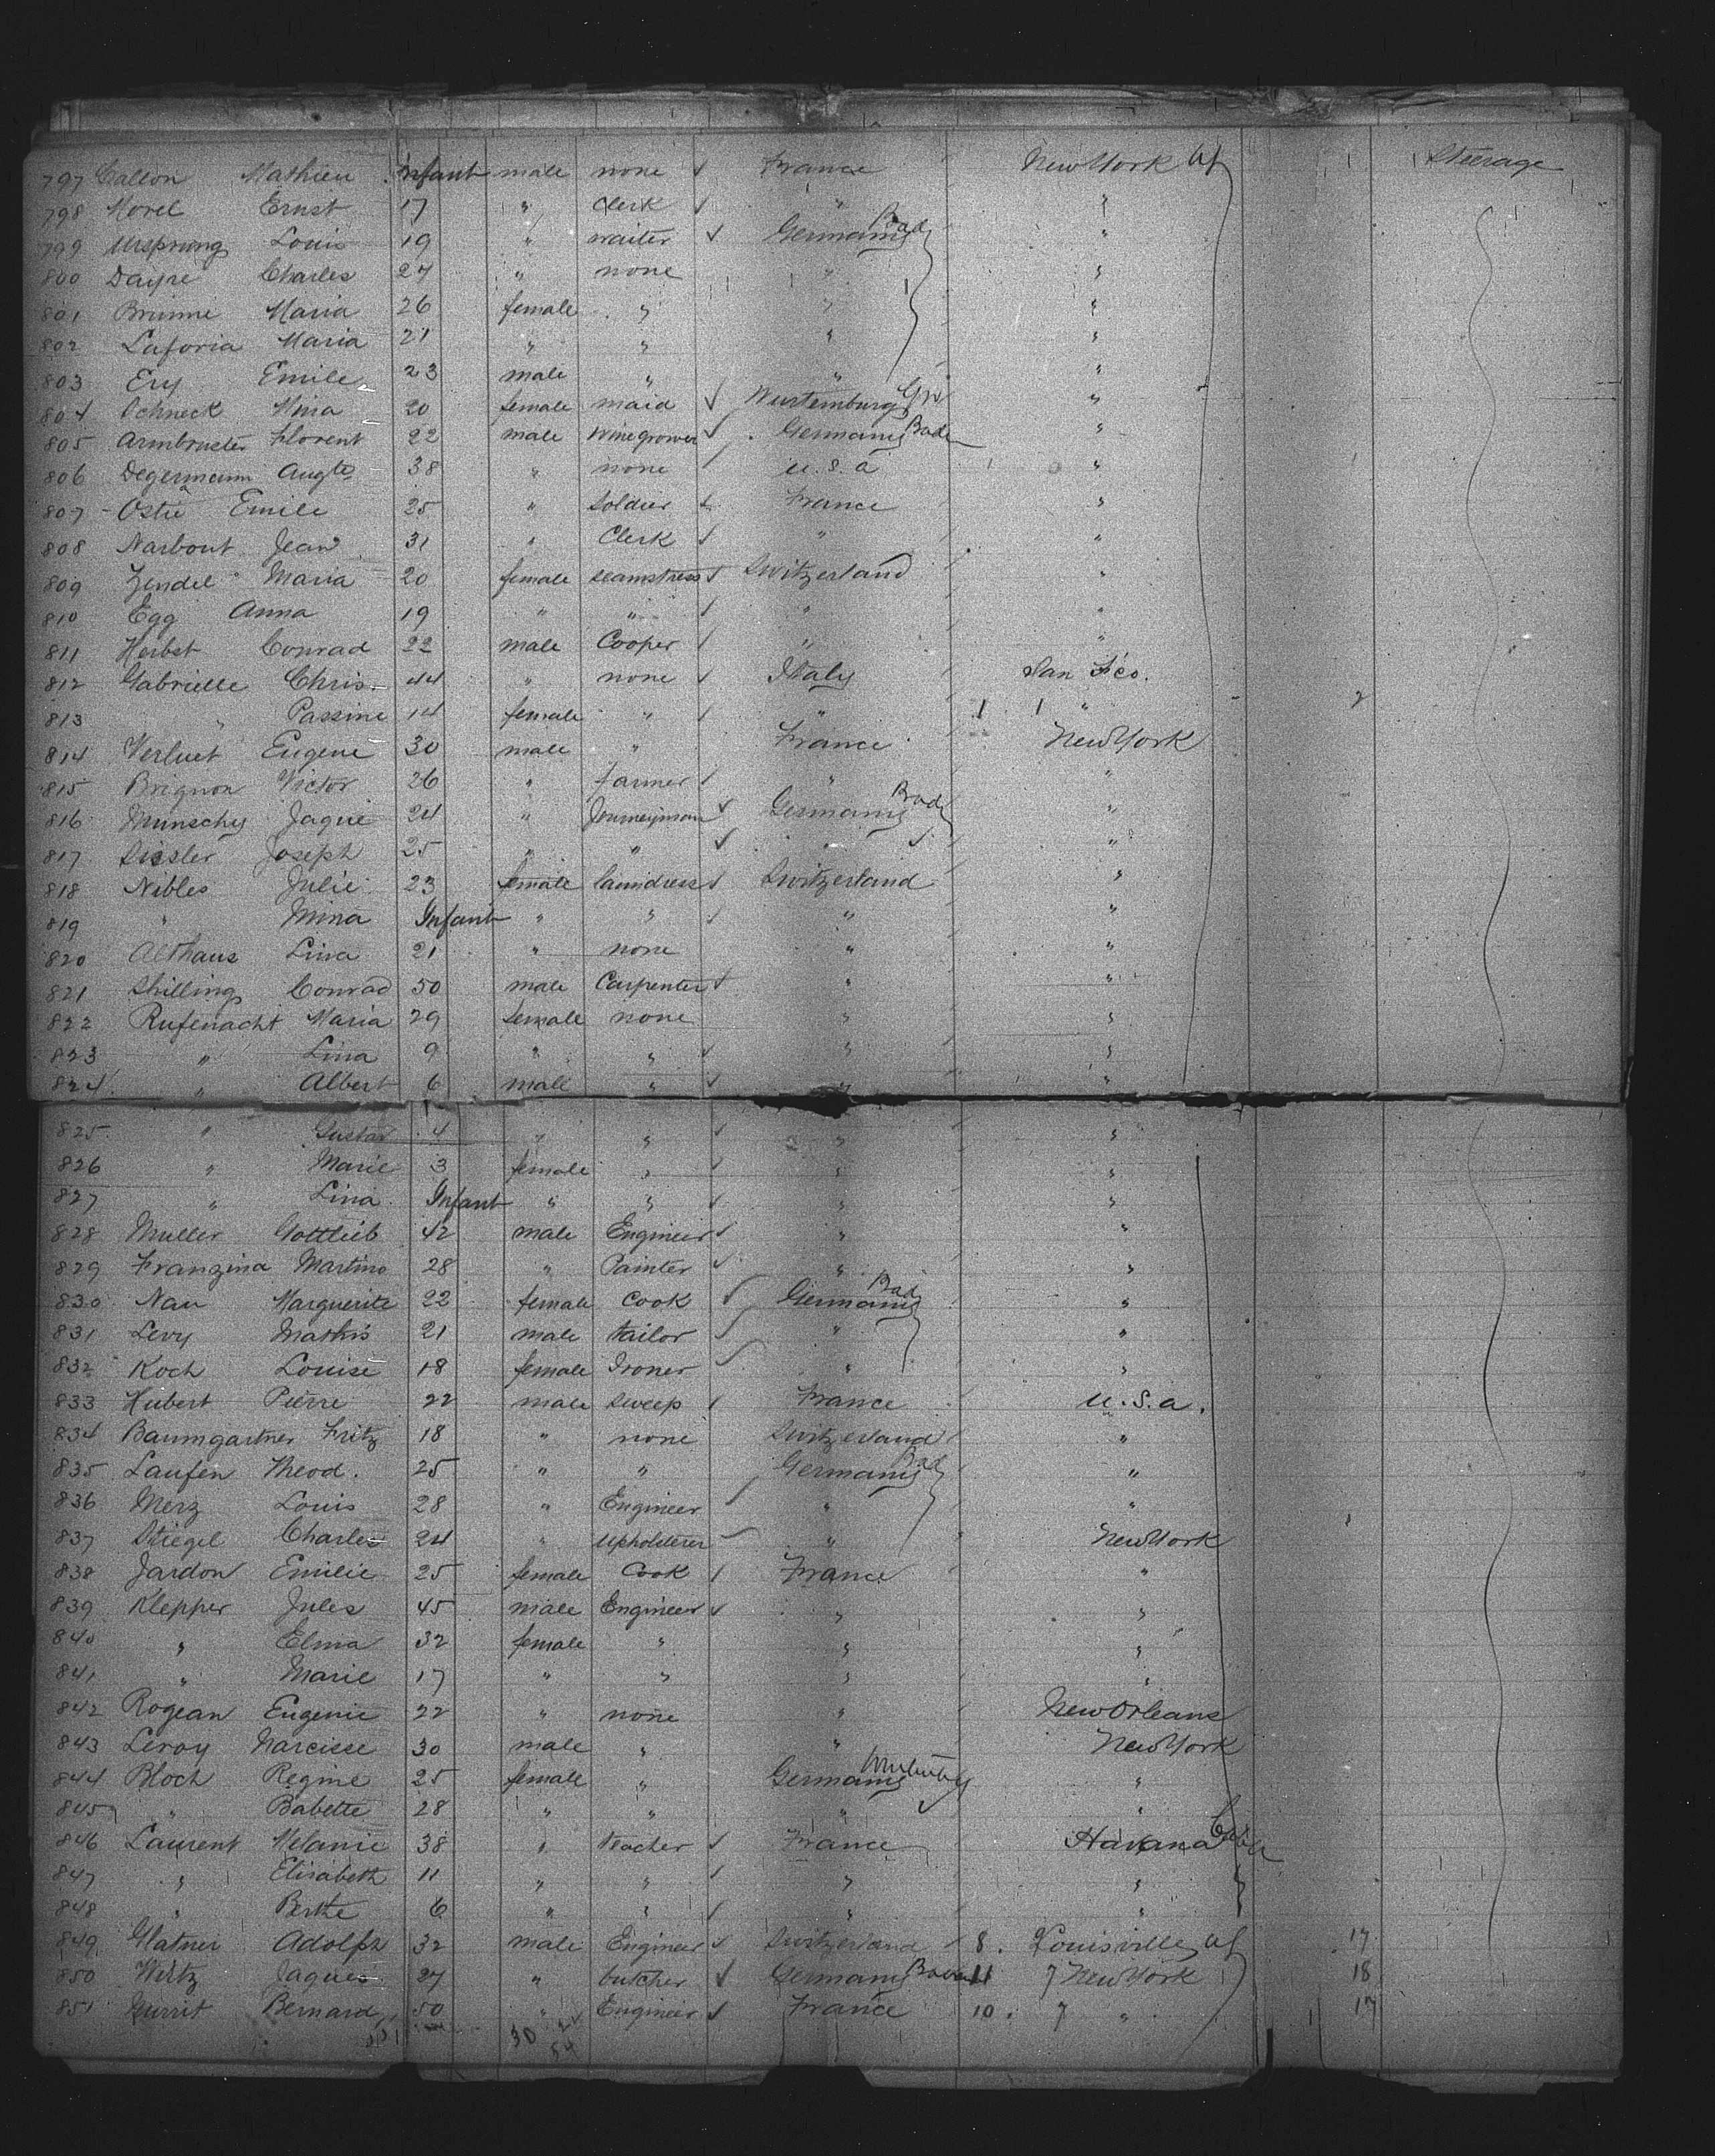 797 Callon Mathieu Infant male none ✓ France New York Steerage
798 Morel Ernst 17 " Clerk ✓ " "
799 Ursprung Louis 19 " waiter ✓ Germany Bad "
800 Dayre Charles 27 " none " "
801 Brinne Maria 26 female " " "
802 Laforia Maria 21 " " " "
803 Ery Emile 23 male " " "
804 Ochneck Mina 20 female maid ✓ Wurtemburg "
805 Armbruster Florent 22 male winegrower ✓ Germany Baden "
806 Degermann Augte 38 " none u.s.a "
807 Ostie Emile 25 " Soldier France "
808 Narbout Jean 31 " Clerk ✓ " "
809 Zendel Maria 20 female seamstress ✓ Switzerland "
810 Egg Anna 19 " " " "
811 Herbst Conrad 22 male Cooper " "
812 Gabrielle Chris. 44 " none ✓ Italy San Fco.
813 " Passine 14 female " " 1 1 " 2
814 Verluet Eugene 30 male " France New York
815 Brignon Victor 26 " farmer " "
816 Munschy Jaque 24 " Journeyman ✓ Germany Bad "
817 Sissler Joseph 25 " " ✓ " "
818 Nibles Julie 23 female laundress ✓ Switzerland "
819 " Mina Infant " " ✓ " "
820 Althaus Lina 21 " none " "
821 Shilling Conrad 50 male Carpenter ✓ " "
822 Rufenacht Maria 29 female none " "
823 " Lina 9 " " ✓ " "
824 " Albert 6 male " ✓ " "
825 " Gustav 4 " " ✓ " "
826 " Marie 3 female " ✓ " "
827 " Lina Infant " " ✓ " "
828 Muller Gottlieb 42 male Engineer ✓ " "
829 Franzina Martino 28 " Painter ✓ " "
830 Nau Marguerite 22 female Cook ✓ Germany Bad "
831 Levy Mathis 21 male tailor ✓ " "
832 Koch Louise 18 female Ironer ✓ " "
833 Hubert Pierre 22 male sweep France u.s.a.
834 Baumgartner Fritz 18 " none Switzerland "
835 Laufen Theod. 25 " " Germany Bad "
836 Merz Louis 28 " Engineer ✓ " "
837 Stiegel Charles 24 " upholsterer " New York
838 Jardon Emilie 25 female Cook France "
839 Klepper Jules 45 male Engineer ✓ " "
840 " Elma 32 female " " "
841 " Marie 17 " " " "
842 Rogean Eugenie 22 " none " New Orleans
843 Leroy Narcisse 30 male " " New York
844 Bloch Regine 25 female " Germany "
845 " Babette 28 " " " "
846 Laurent Melanie 38 " teacher ✓ France Havana Cuba
847 " Elisabeth 11 " " " "
848 " Berthe 6 " " " "
849 Glatner Adolph 32 male Engineer ✓ Switzerland 8. Louisville 17
850 Wirtz Jaques 27 " butcher ✓ Germany 11 7 New York 18
851 Gurrit Bernard 50 " Engineer ✓ France 10. 7 " 17
30